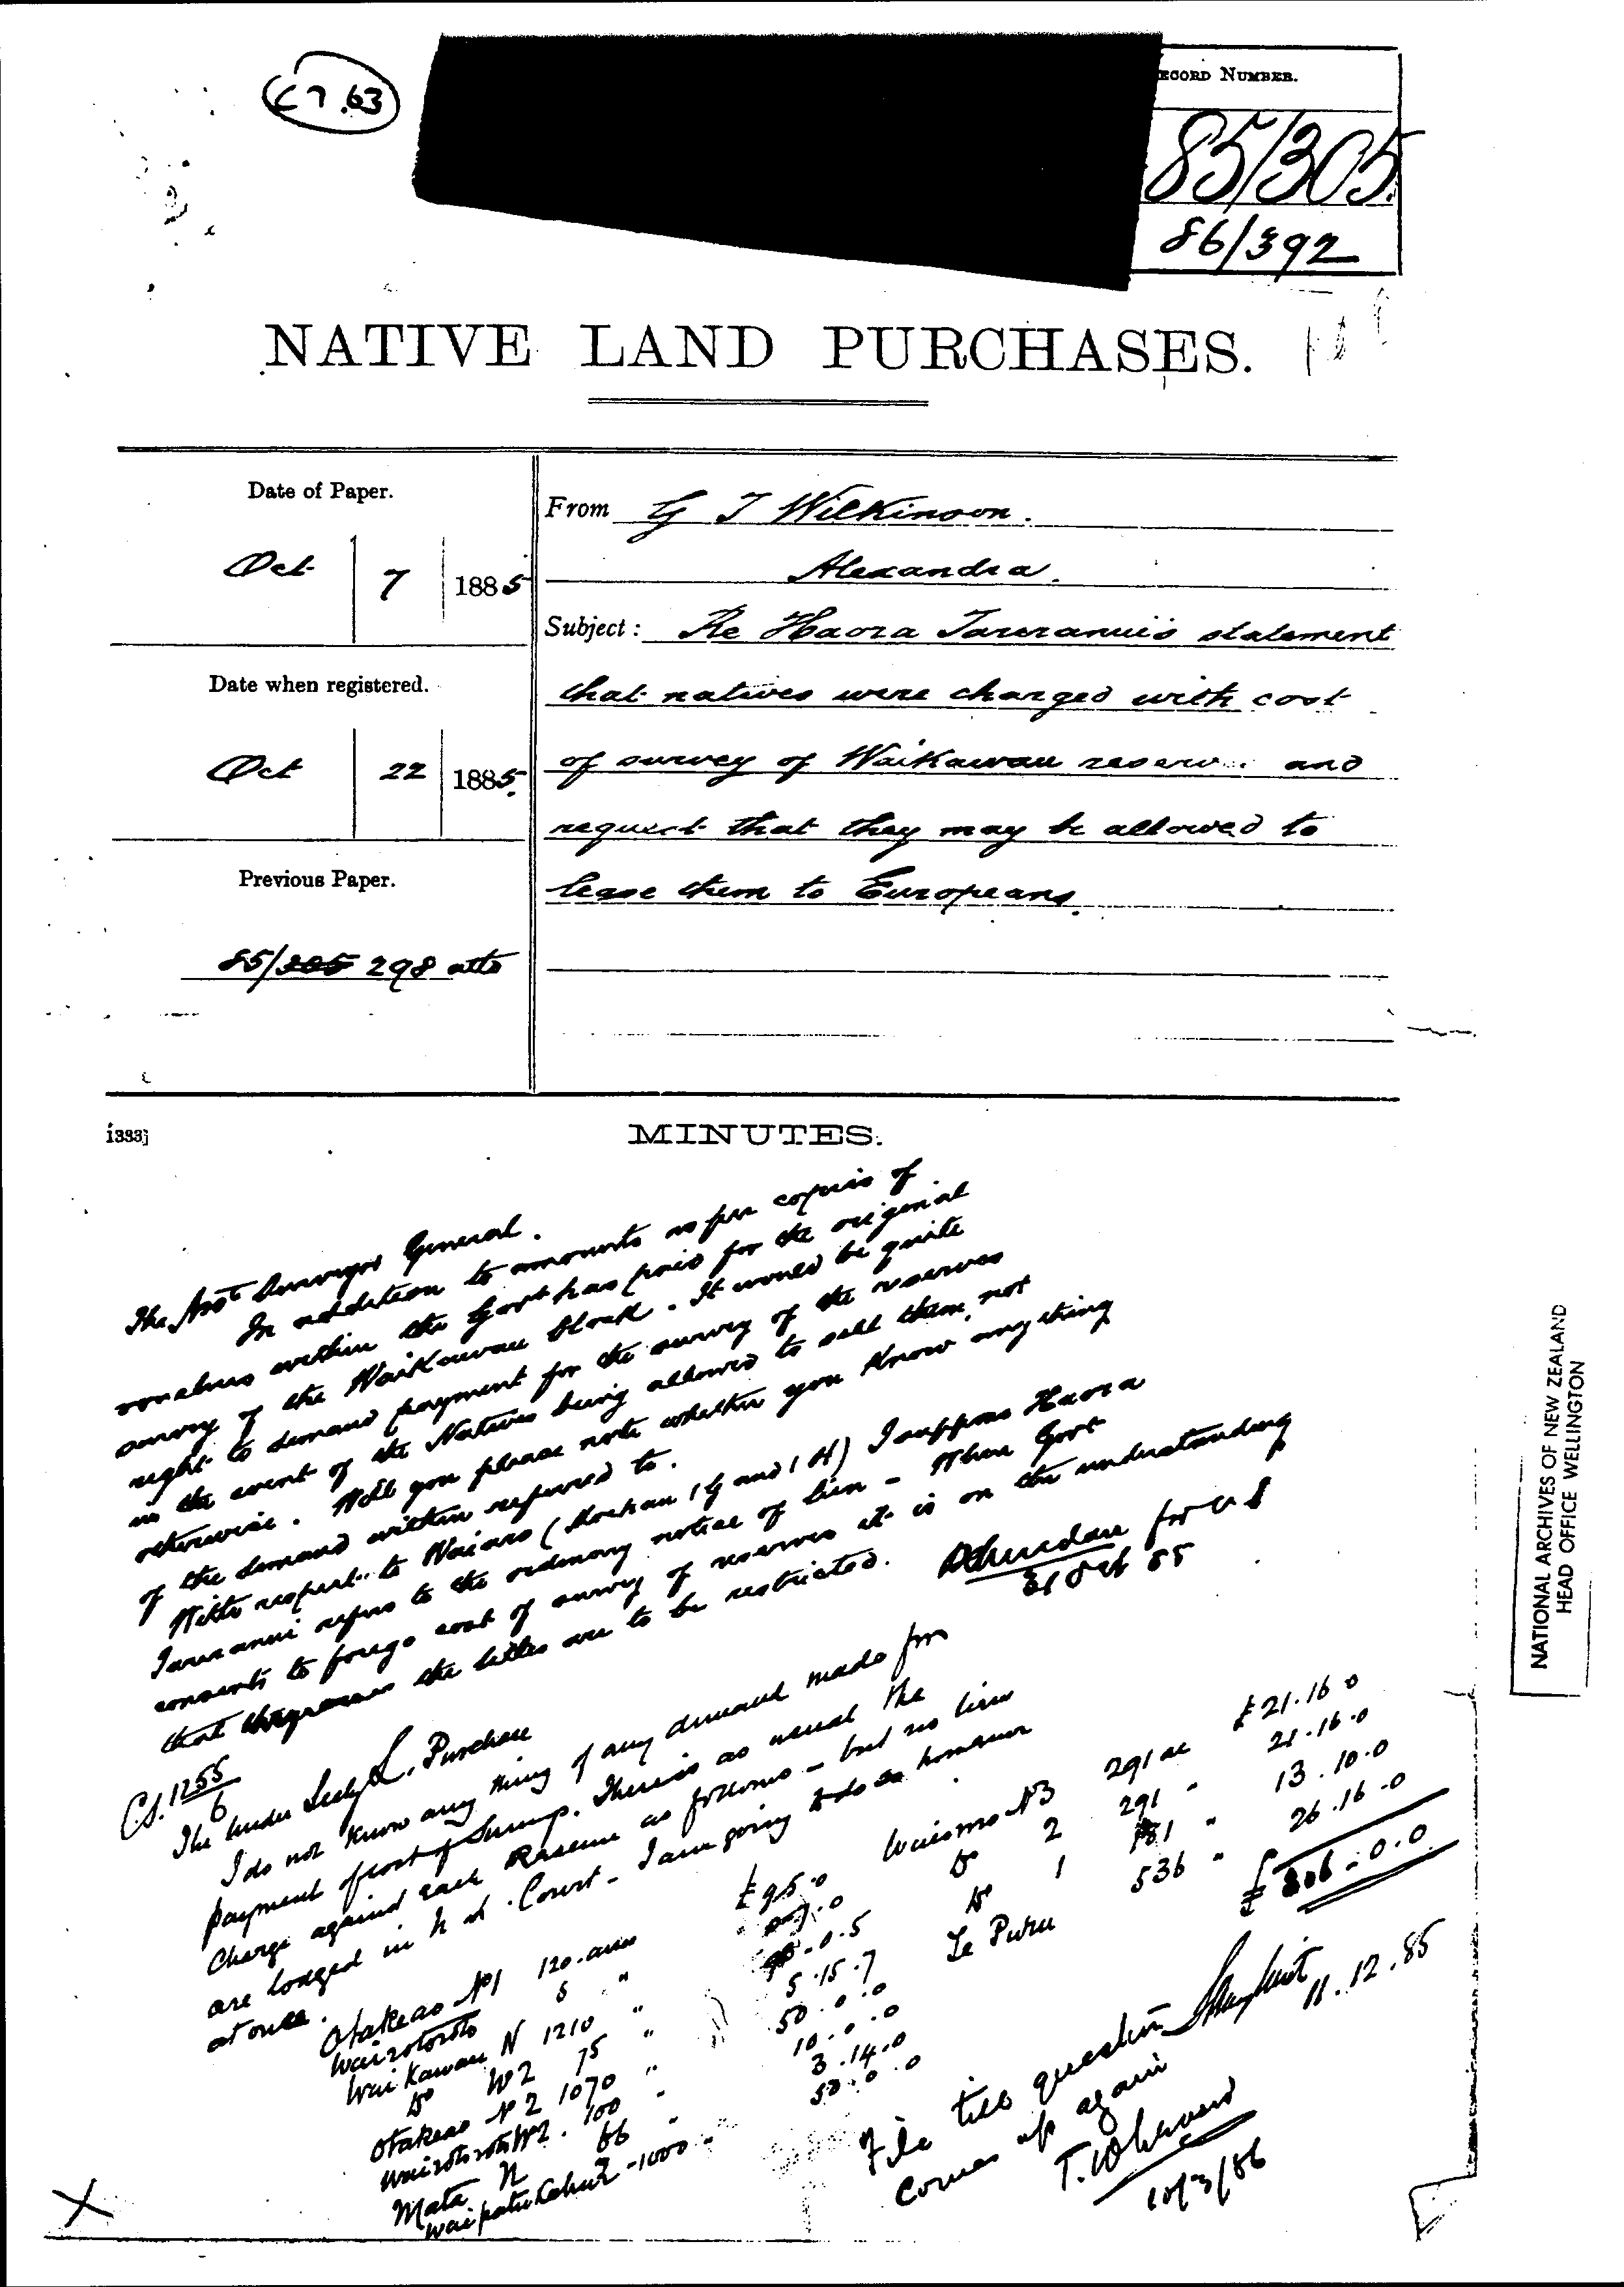 67.63
RECORD NUMBER.
85/305.
86/392
NATIVE LAND PURCHASES.
Date of Paper.
Oct 7 1885
Date when registered.
Oct 22 1885.
Previous Paper.
85/305 298 atto
From G T Wilkinson.
Alexandra.
Subject: Re Haora Tareranui's statement
that natives were charged with cost
of survey of Waikawau reserv and
request that they may be allowed to
lease them to Europeans.
1333]
MINUTES.
The Asst Surveyor General.
In addition to amounts as per copies of
vouchers within the Govt has paid for the original
survey of the Waikawau block. It would be quite
right to demand payment for the survey of the reserves
in the event of the Natives being allowed to sell them, not
otherwise. Will you please note whether you know anything
of the demand within referred to.
With respect to Waiaro (Moehau 1G and 1H) I suppose Haora
Tareranui refers to the ordinary notice of lien - When Govt
consents to forego cost of survey of reserves it is on the understanding
that the titles are to be restricted.
for US
31 Oct 85
C.S. 1255
6
The Under Secy L. Purchase
I do not know any thing of any demand made for
payment of cost of survey. There is as usual the
Charge against each Reserve as follows - but no liens
are lodged in N L Court - I am going to do so however
at once.
Otakeao No1 120 acres £9.5.0
Wairotoroto 5 "
Waikawau N 1210 " 0.5
Do W2 75 " 5.15.7
Otakeao No 2 1070 " 50.0.0
Wairotoroto No2. 100 " 10.0.0
Mata N 66 " 3.14.0
Waipatukahu 2 - 1000 - 50.0.0
Waiomo No3 291 ac £21.16.0
Do 2 291 " 21.16.0
Do 1 181 " 13.10.0
Te Puru 536 " 26.16.0
£306.0.0
11.12.85
File till question
comes up again
10/3/86
NATIONAL ARCHIVES OF NEW ZEALAND
HEAD OFFICE WELLINGTON